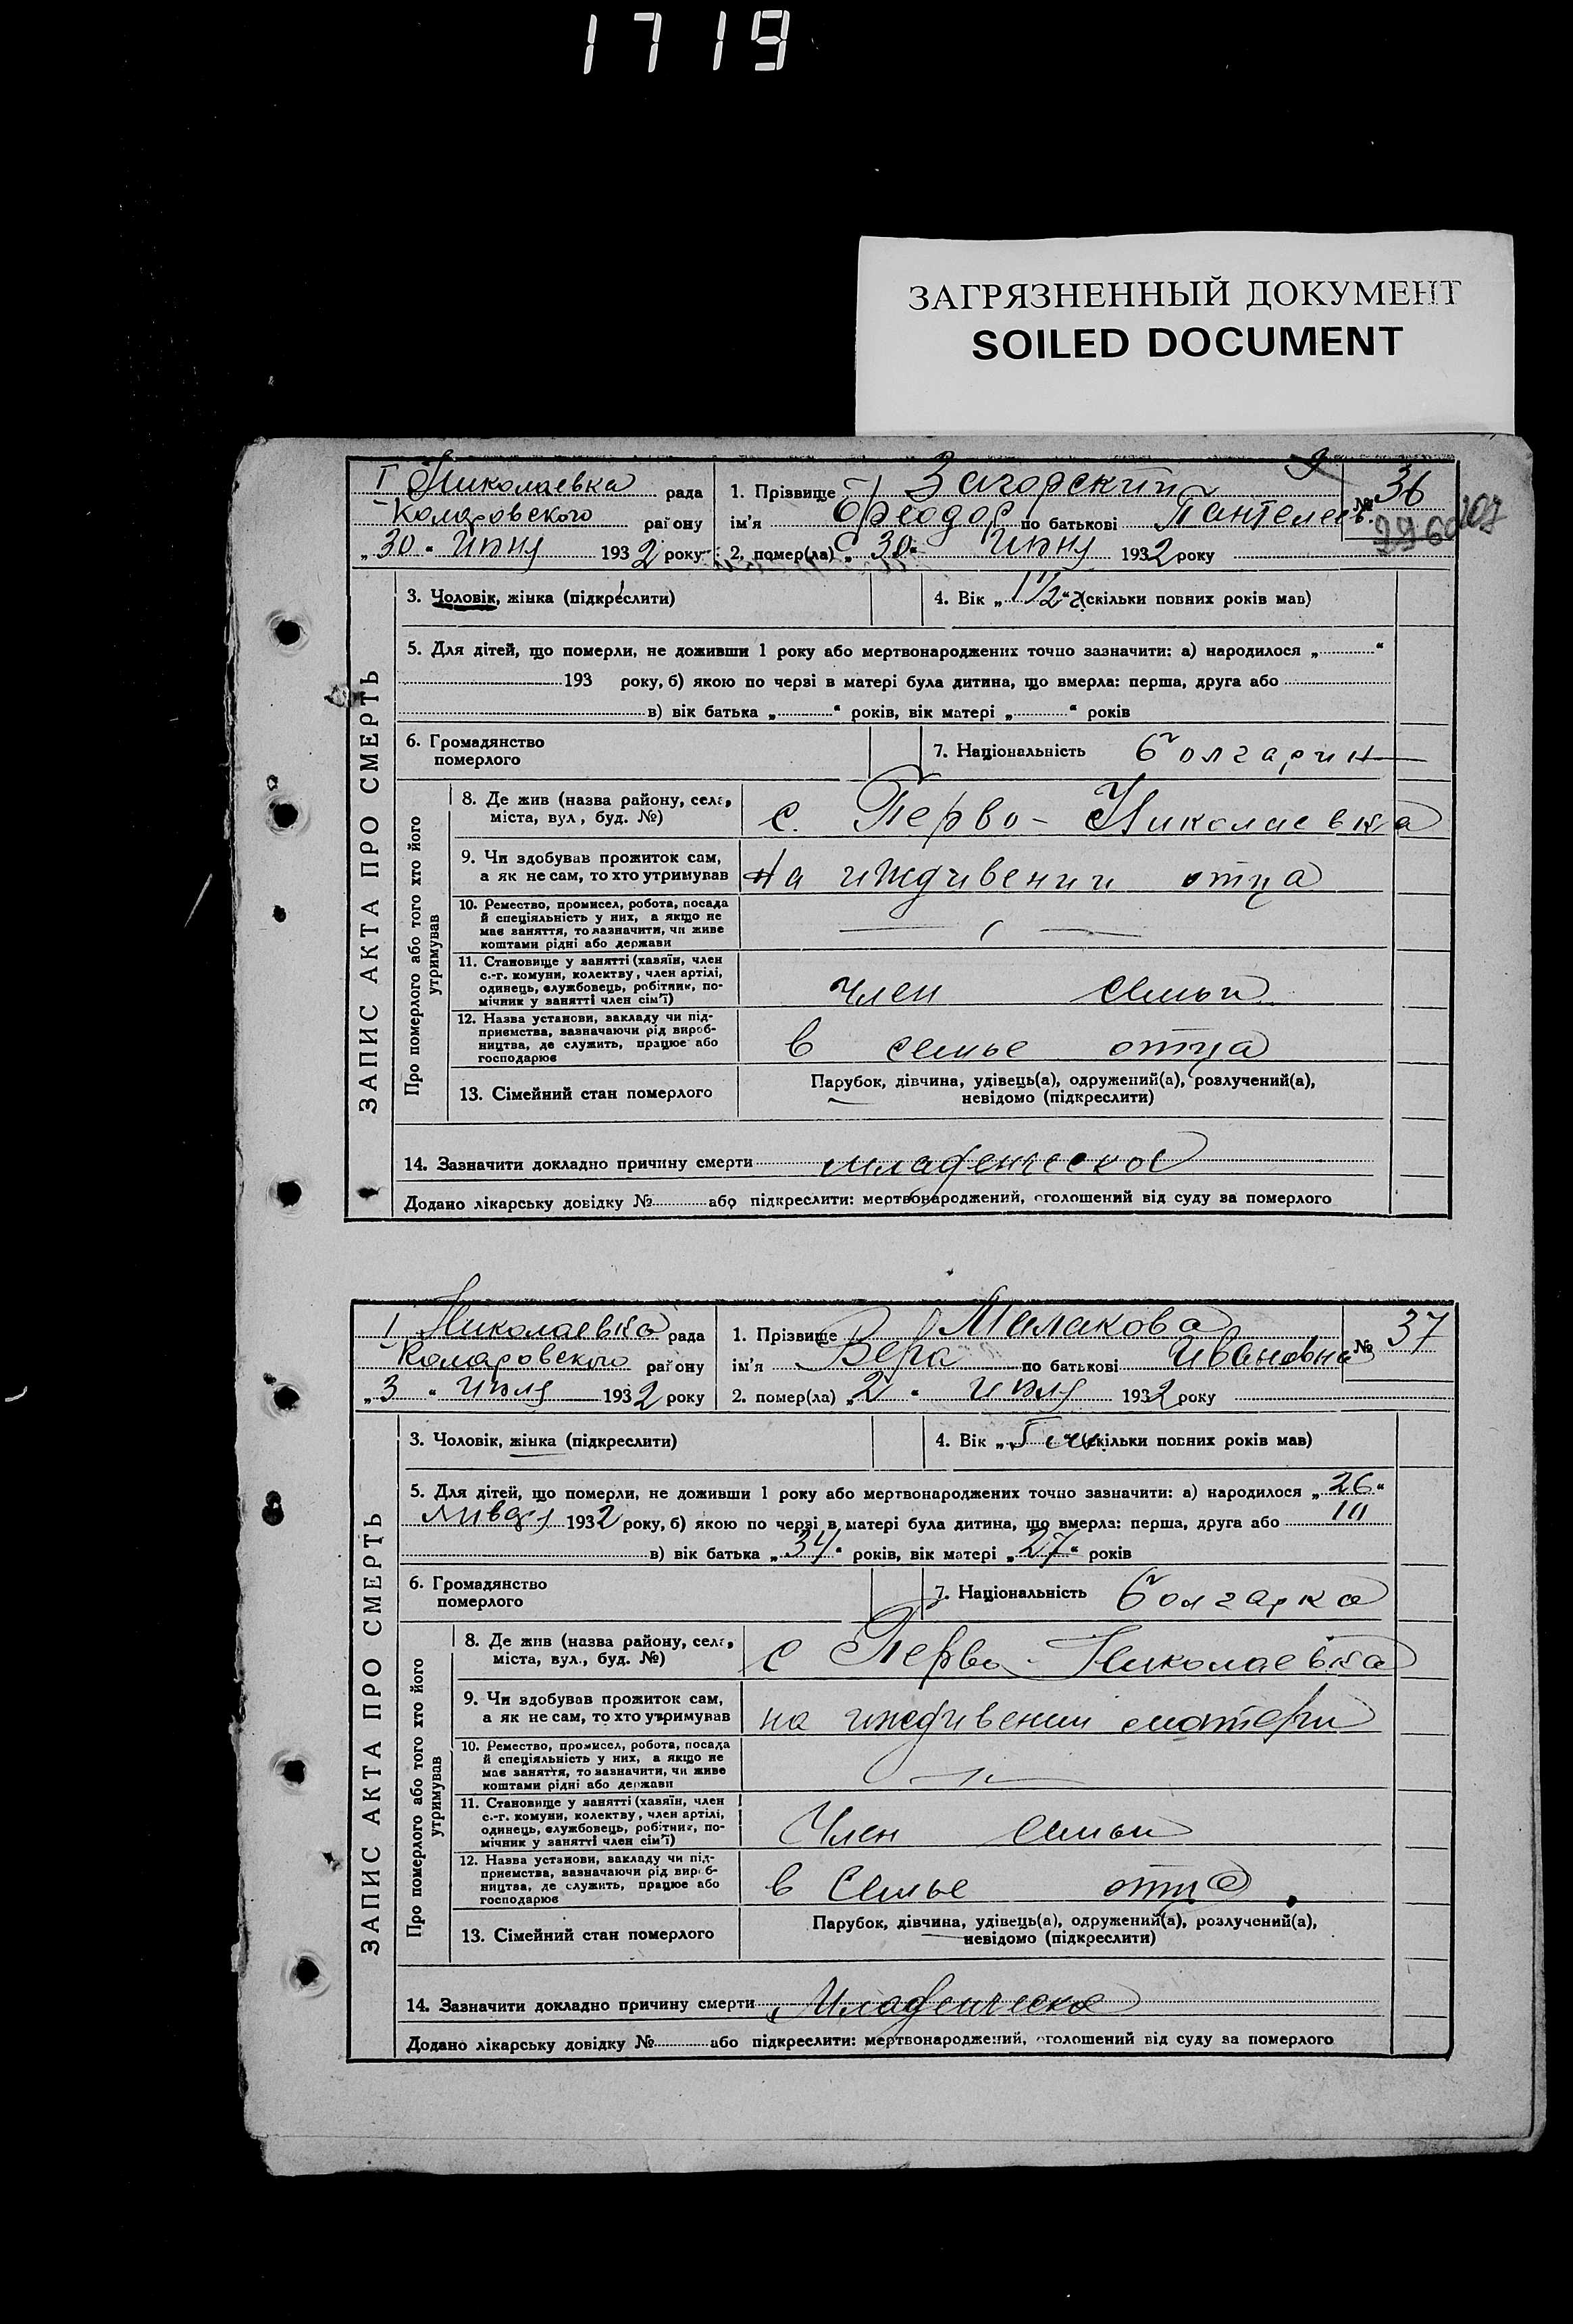 1719
ЗАГРЯЗНЕННЫЙ ДОКУМЕНТ
SOILED DOCUMENT
ЗАПИС АКТА ПРО СМЕРТЬ
I Николаевка рада
Комаровского району
„30“ июня 1932 року
1. Прізвище Загорский
ім'я Феодор по батькові Пантелеев.
2. помер(ла) „30“ июня 1932 року
№ 36
107
3. Чоловік, жінка (підкреслити)
4. Вік „1 1/2“ (скільки повних років мав)
5. Для дітей, що померли, не доживши 1 року або мертвонароджених точно зазначити: а) народилося „ “
193 року, б) якою по черзі в матері була дитина, що вмерла: перша, друга або
в) вік батька „ “ років, вік матері „ “ років
6. Громадянство
померлого
7. Національність болгарин
Про померлого або того хто його
утримував
8. Де жив (назва району, села,
міста, вул., буд. №)
с. Перво-Николаевка
9. Чи здобував прожиток сам,
а як не сам, то хто утримував
на иждивении отца
10. Ремество, промисел, робота, посада
й спеціяльність у них, а якщо не
має заняття, то зазначити, чи живе
коштами рідні або держави
11. Становище у занятті (хазяїн, член
с.-г. комуни, колективу, член артілі,
одинець, службовець, робітник, по-
мічник у занятті член сім'ї)
член семьи
12. Назва установи, закладу чи під-
приємства, зазначаючи рід вироб-
ництва, де служить, працює або
господарює
в семье отца
13. Сімейний стан померлого
Парубок, дівчина, удівець(а), одружений(а), розлучений(а),
невідомо (підкреслити)
14. Зазначити докладно причину смерти младенческое
Додано лікарську довідку № або підкреслити: мертвонароджений, оголошений від суду за померлого
ЗАПИС АКТА ПРО СМЕРТЬ
I Николаевка рада
Комаровского району
„3“ июля 1932 року
1. Прізвище Малакова
ім'я Вера по батькові Ивановна
2. помер(ла) „2“ июля 1932 року
№ 37
3. Чоловік, жінка (підкреслити)
4. Вік „5 “ (скільки повних років мав)
5. Для дітей, що померли, не доживши 1 року або мертвонароджених точно зазначити: а) народилося „26“
января 1932 року, б) якою по черзі в матері була дитина, що вмерла: перша, друга або III
в) вік батька „34“ років, вік матері „27“ років
6. Громадянство
померлого
7. Національність болгарка
Про померлого або того хто його
утримував
8. Де жив (назва району, села,
міста, вул., буд. №)
с Перво-Николаевка
9. Чи здобував прожиток сам,
а як не сам, то хто утримував
на иждивении матери
10. Ремество, промисел, робота, посада
й спеціяльність у них, а якщо не
має заняття, то зазначити, чи живе
коштами рідні або держави
11. Становище у занятті (хазяїн, член
с.-г. комуни, колективу, член артілі,
одинець, службовець, робітник, по-
мічник у занятті член сім'ї)
Член семьи
12. Назва установи, закладу чи під-
приємства, зазначаючи рід вироб-
ництва, де служить, працює або
господарює
в семье отца
13. Сімейний стан померлого
Парубок, дівчина, удівець(а), одружений(а), розлучений(а),
невідомо (підкреслити)
14. Зазначити докладно причину смерти Младенческое
Додано лікарську довідку № або підкреслити: мертвонароджений, оголошений від суду за померлого